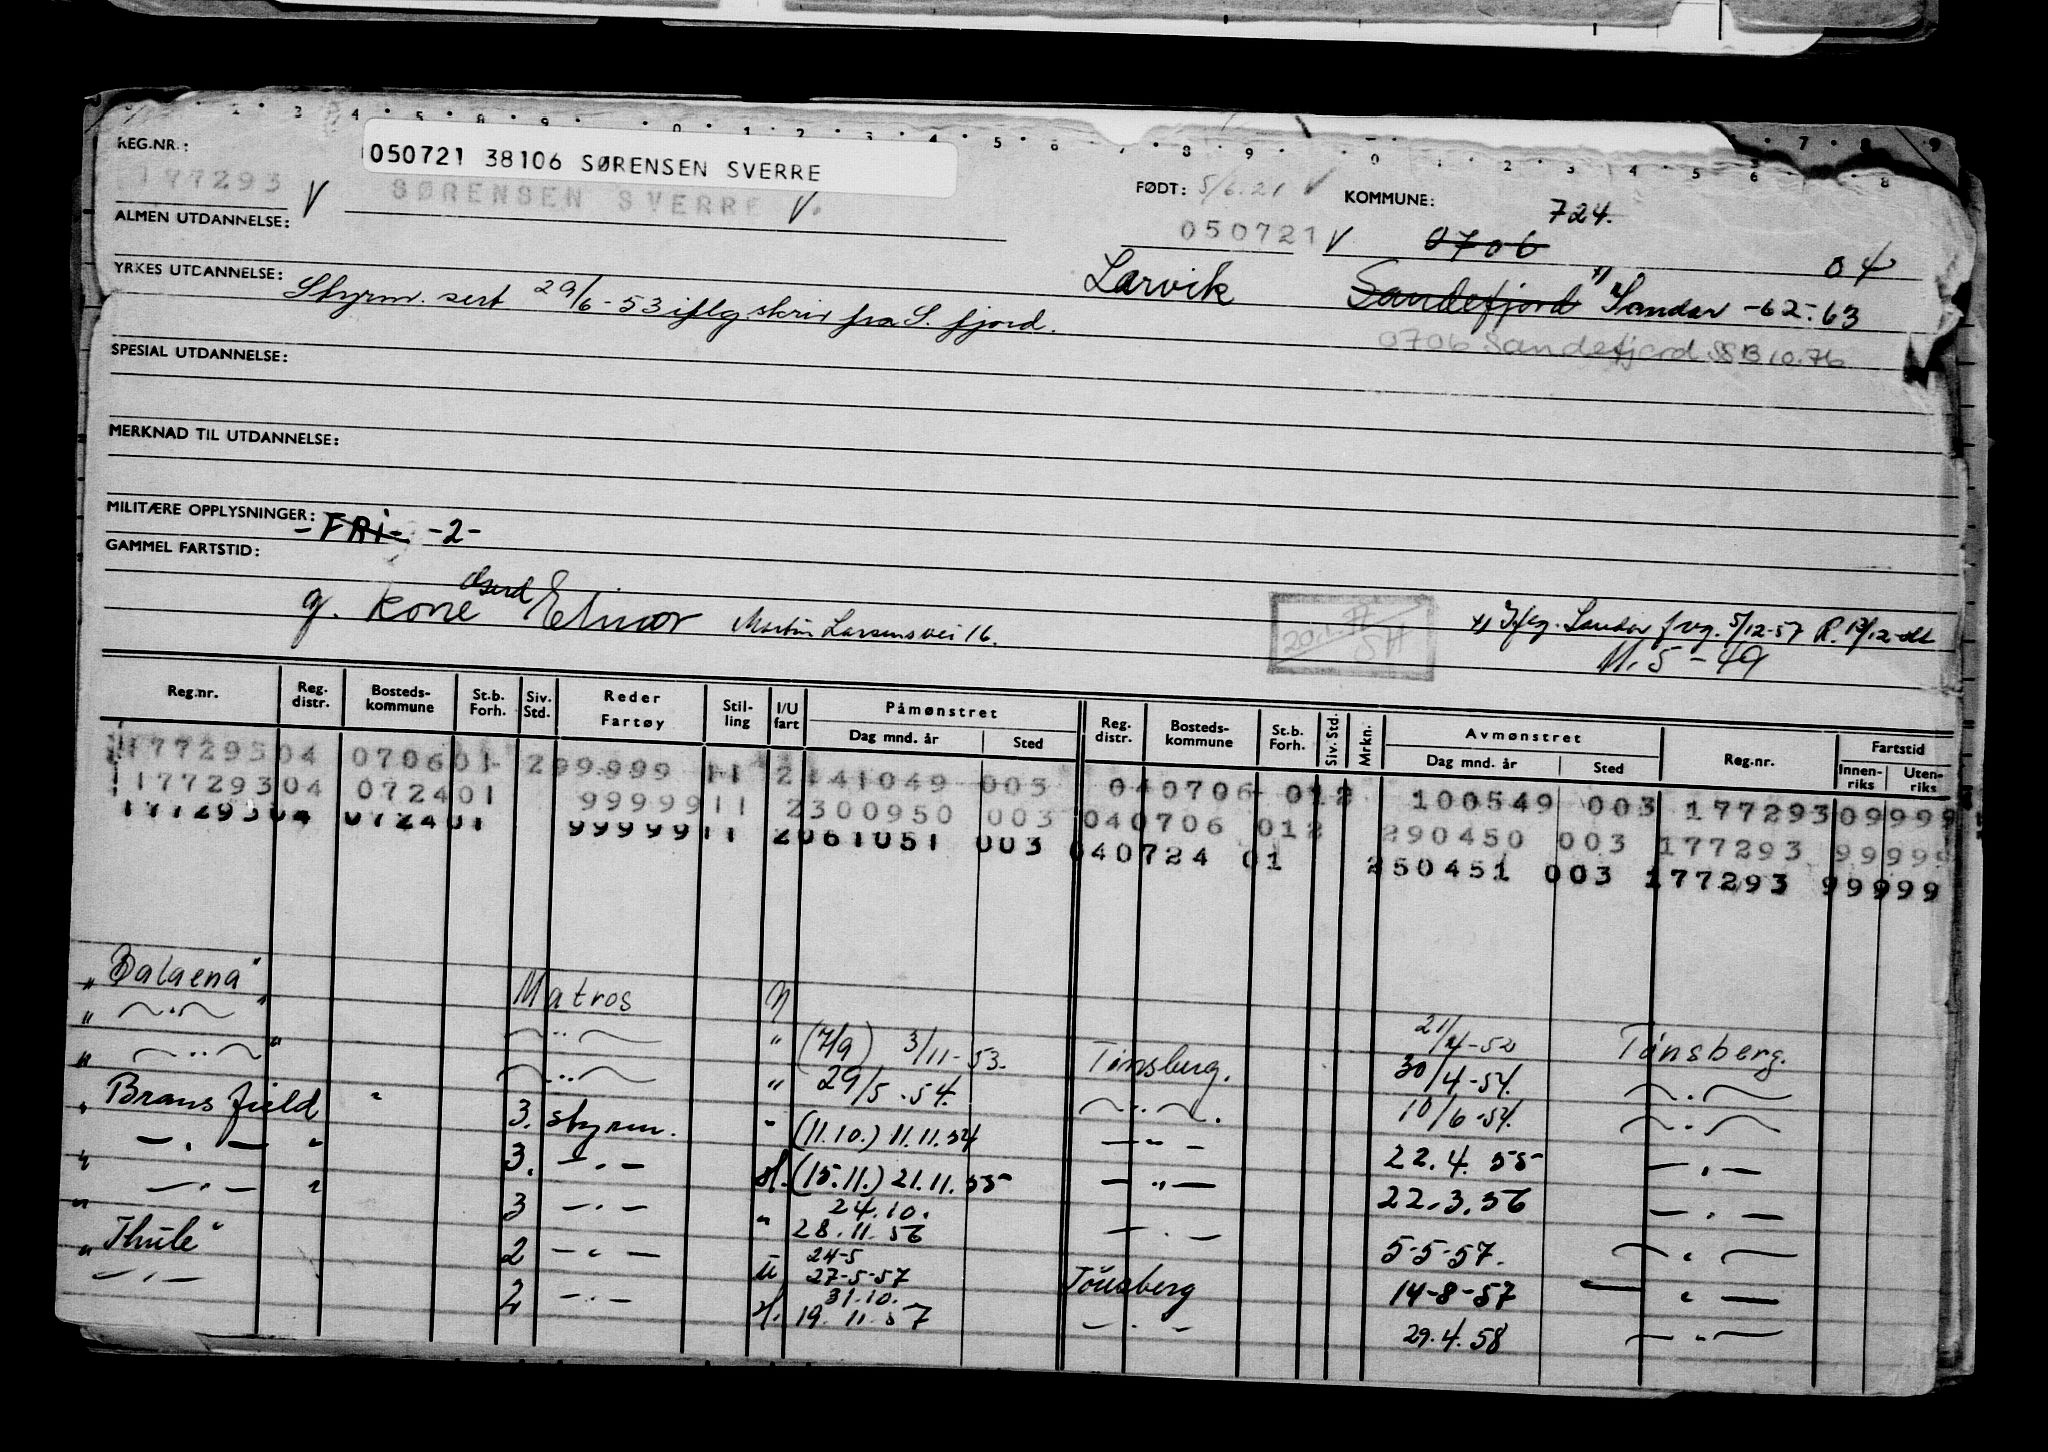 REG.NR.: 050721 38106 SØRENSEN SVERRE
177293 V SØRENSEN SVERRE V. FØDT: 5/6.21 V KOMMUNE: 724.
ALMEN UTDANNELSE: 050721 V 0706 04
YRKES UTDANNELSE: Styrm. sert 29/6-53 iflg. skriv fra S. fjord. Larvik Sandefjord x) Sandar -62-63
0706 Sandefjord SSB 10.76
SPESIAL UTDANNELSE:
MERKNAD TIL UTDANNELSE:
MILITÆRE OPPLYSNINGER: -FRI- -2-
GAMMEL FARTSTID:
g. kone Elinor Martin Larsensvei 16. 20.1.77 SH x) Iflg. Sandar 5/12-57
M. 5-49
Reg.nr. Reg. distr. Bosteds-kommune St.b. Forh. Siv. Std. Reder Fartøy Stil-ling I/U fart Påmønstret Dag mnd. år Sted Reg. distr. Bosteds-kommune St.b. Forh. Siv. Std. Mrkn. Avmønstret Dag mnd. år Sted Reg.nr. Fartstid Innen-riks Uten-riks
17729304 070601 299999 11 2141049 003 040706 012 100549 003 177293 09999
17729304 072401 99999 11 2300950 003 040706 012 290450 003 177293 99999
17729304 072401 99999 11 2061051 003 040724 01 250451 003 177293 99999
" Balaena" Matros 21/4-52 Tønsberg.
" — " — " — " — " (7/9) 3/11-53. Tønsberg. 30/4-54. — " —
" — " — " — " — " 29/5-54. — " — 10/6-54. — " —
" Bransfield " 3. styrm. " (11.10.) 11.11.54 — " — 22.4.55 — " —
" — " — " 3. — " — (15.11.) 21.11.55 — " — 22.3.56 — " —
" — " — " 3 — " — " 24.10. 28.11.56 — " — 5-5-57. — " —
" Thule" 2 — " — U 24-5 27-5-57 Tönsberg 14-8-57 — " —
— " — 2 — " — 31.10. 19.11.57 — " — 29.4.58 — " —